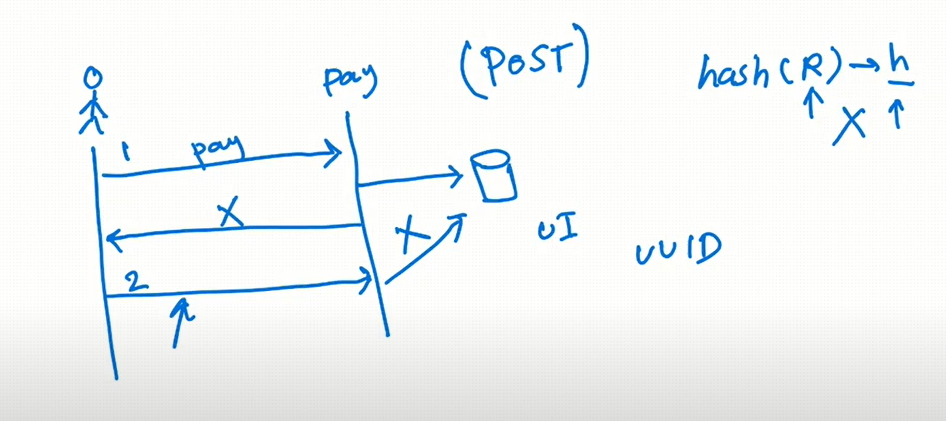 pay (POST) hash(R)→h
1 pay
X
X
X
UI
UUID
2